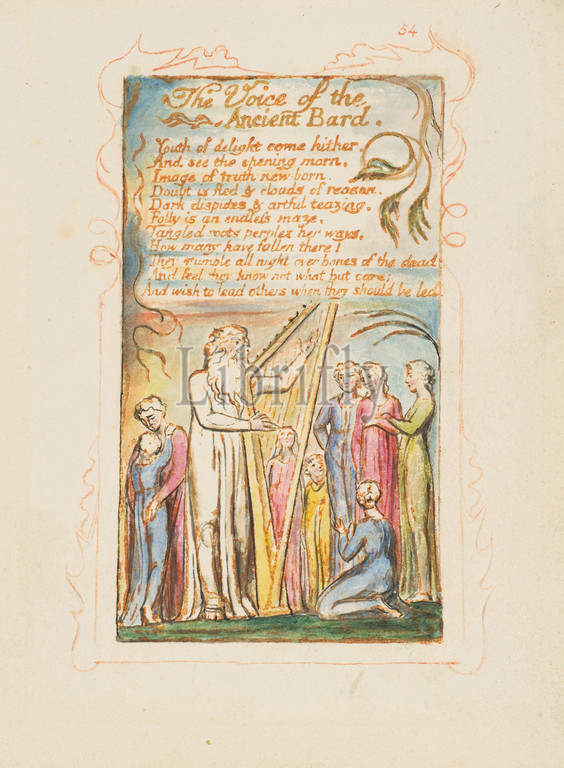 54
The Voice of the
Ancient Bard.
Youth of delight come hither.
And see the opening morn,
Image of truth new born
Doubt is fled & clouds of reason.
Dark disputes & artful teazing,
Folly is an endless maze,
Tangled roots perplex her ways,
How many have fallen there!
They stumble all night over bones of the dead
And feel they know not what but care;
And wish to lead others when they should be led
Librifly